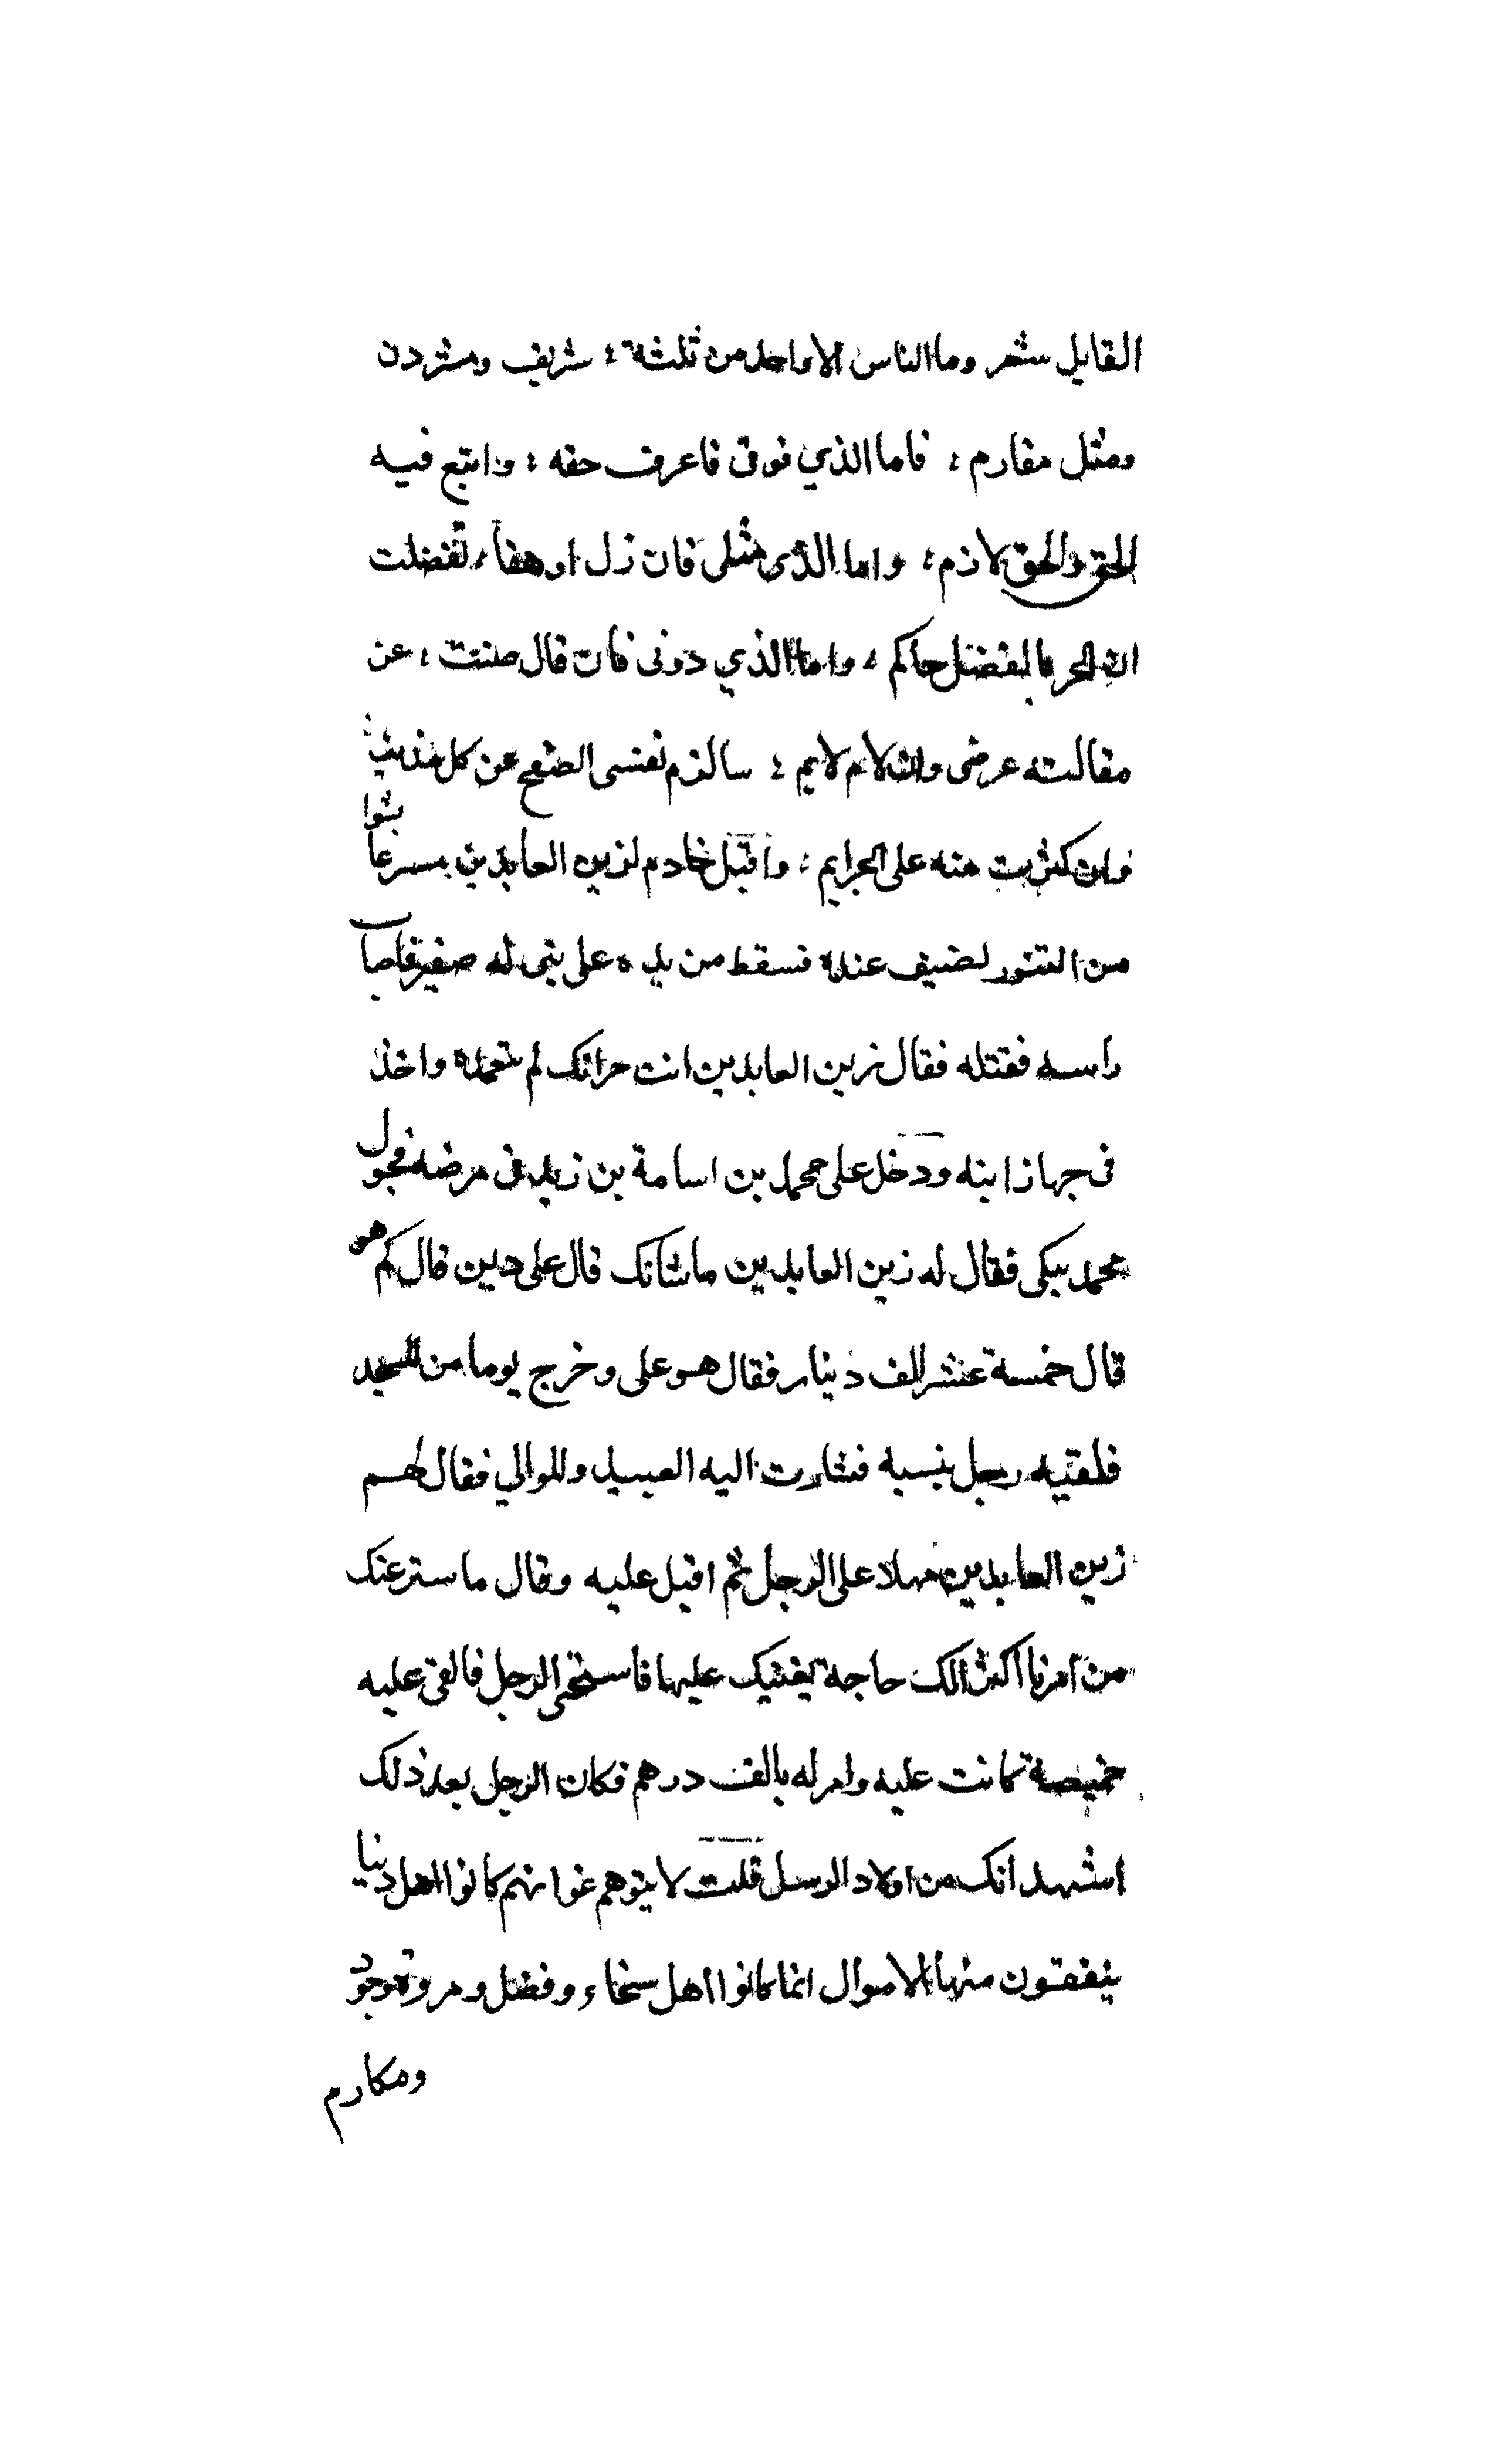 القايل شعر وما الناس الا واحد من ثلثة ؛ شريف ومشردن
ومثل مقارم ؛ فاما الذي فوقى فاعرف حقه ؛ واتبع فيه
الحق والحق لازم ؛ واما الذى مثلى فان زل او هفاء تفضلت
ان الحر بالفضل حاكم ؛ واما الذي دونى فان قال صنت ؛ عن
مقالته عرضى وان لام لايم ؛ سالزم نفسى الصفح عن كل مذنب
وان كثرت منه على الجرايم ؛ واقبل خادم لزين العابدين مسرعا بشوا
من التنور لضيف عنده فسقط من يده على بنى له صغير فاصاب
راسه فقتله فقال زين العابدين انت حر انك لم تتعمده واخذ
فى جهاز ابنه ودخل على محمد بن اسامة بن زيد فى مرضه فجول
محمد يبكى فقال له زين العابدين ما شانك قال على دين قال كم هو
قال خمسة عشر الف دينار فقال هو على وخرج يوما من المسجد
فلقيه رجل بسبه فثارت اليه العبيد والموالي فقال لهم
زين العابدين مهلا على الرجل ثم اقبل عليه وقال ما ستر عنك
من امرنا اكثر الك حاجة يغنيك عليها فاستحى الرجل فالقى عليه
خميصة كانت عليه وامر له بالف درهم فكان الرجل بعد ذلك
اشهد انك من اولاد الرسل قلت لا يتوهم غوا نهم كانوا اهل دنيا
ينفقون منها الاموال انما كانوا اهل سخاء وفضل ومروة وجود
ومكارم